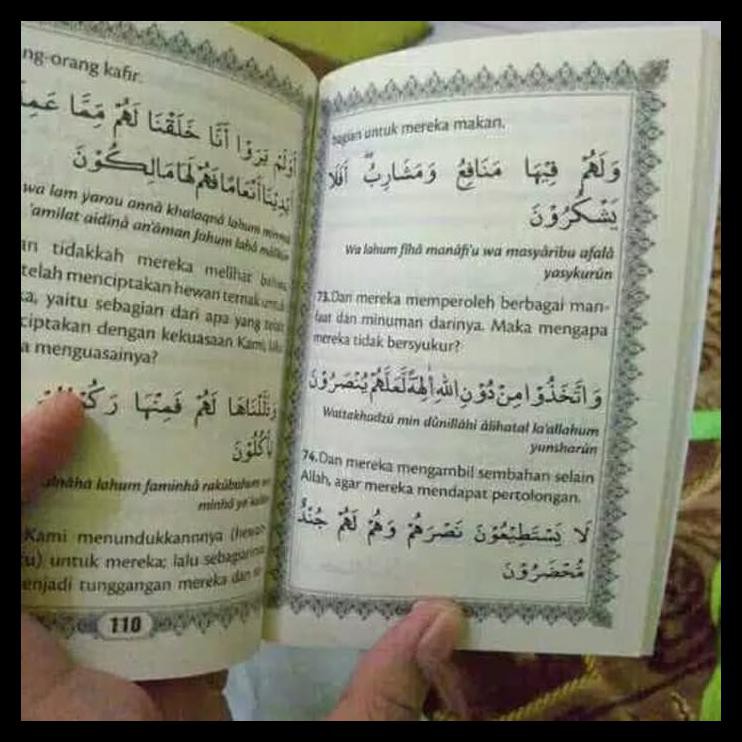 ng-orang kafir.
اَوَلَمْ يَرَوْا اَنَّا خَلَقْنَا لَهُمْ مِّمَّا عَمِلَ
اَيْدِيْنَا اَنْعَامًا فَهُمْ لَهَا مَالِكُوْنَ
wa lam yarau annâ khalaqnâ lahum mimmâ
'amilat aidînâ an'âman fahum lahâ mâlikûn
an tidakkah mereka melihat bahwa
telah menciptakan hewan ternak untuk
ka, yaitu sebagian dari apa yang telah
ciptakan dengan kekuasaan Kami, lalu
a menguasainya?
وَذَلَّلْنَاهَا لَهُمْ فَمِنْهَا
يَأْكُلُوْنَ
alnâhâ lahum faminhâ rakûbuhum wa
minhâ ya'kulûn
Kami menundukkannnya (hewan
tu) untuk mereka; lalu sebagiannya
enjadi tunggangan mereka dan se
110
bagian untuk mereka makan.
وَلَهُمْ فِيْهَا مَنَافِعُ وَمَشَارِبُ ۗ اَفَلَا
يَشْكُرُوْنَ
Wa lahum fîhâ manâfi'u wa masyâribu afalâ
yasykurûn
73.Dan mereka memperoleh berbagai man-
faat dan minuman darinya. Maka mengapa
mereka tidak bersyukur?
وَاتَّخَذُوْا مِنْ دُوْنِ اللّٰهِ اٰلِهَةً لَّعَلَّهُمْ يُنْصَرُوْنَ
Wattakhadzû min dûnillâhi âlihatal la'allahum
yunsharûn
74.Dan mereka mengambil sembahan selain
Allah, agar mereka mendapat pertolongan.
لَا يَسْتَطِيْعُوْنَ نَصْرَهُمْ وَهُمْ لَهُمْ جُنْدٌ
مُّحْضَرُوْنَ